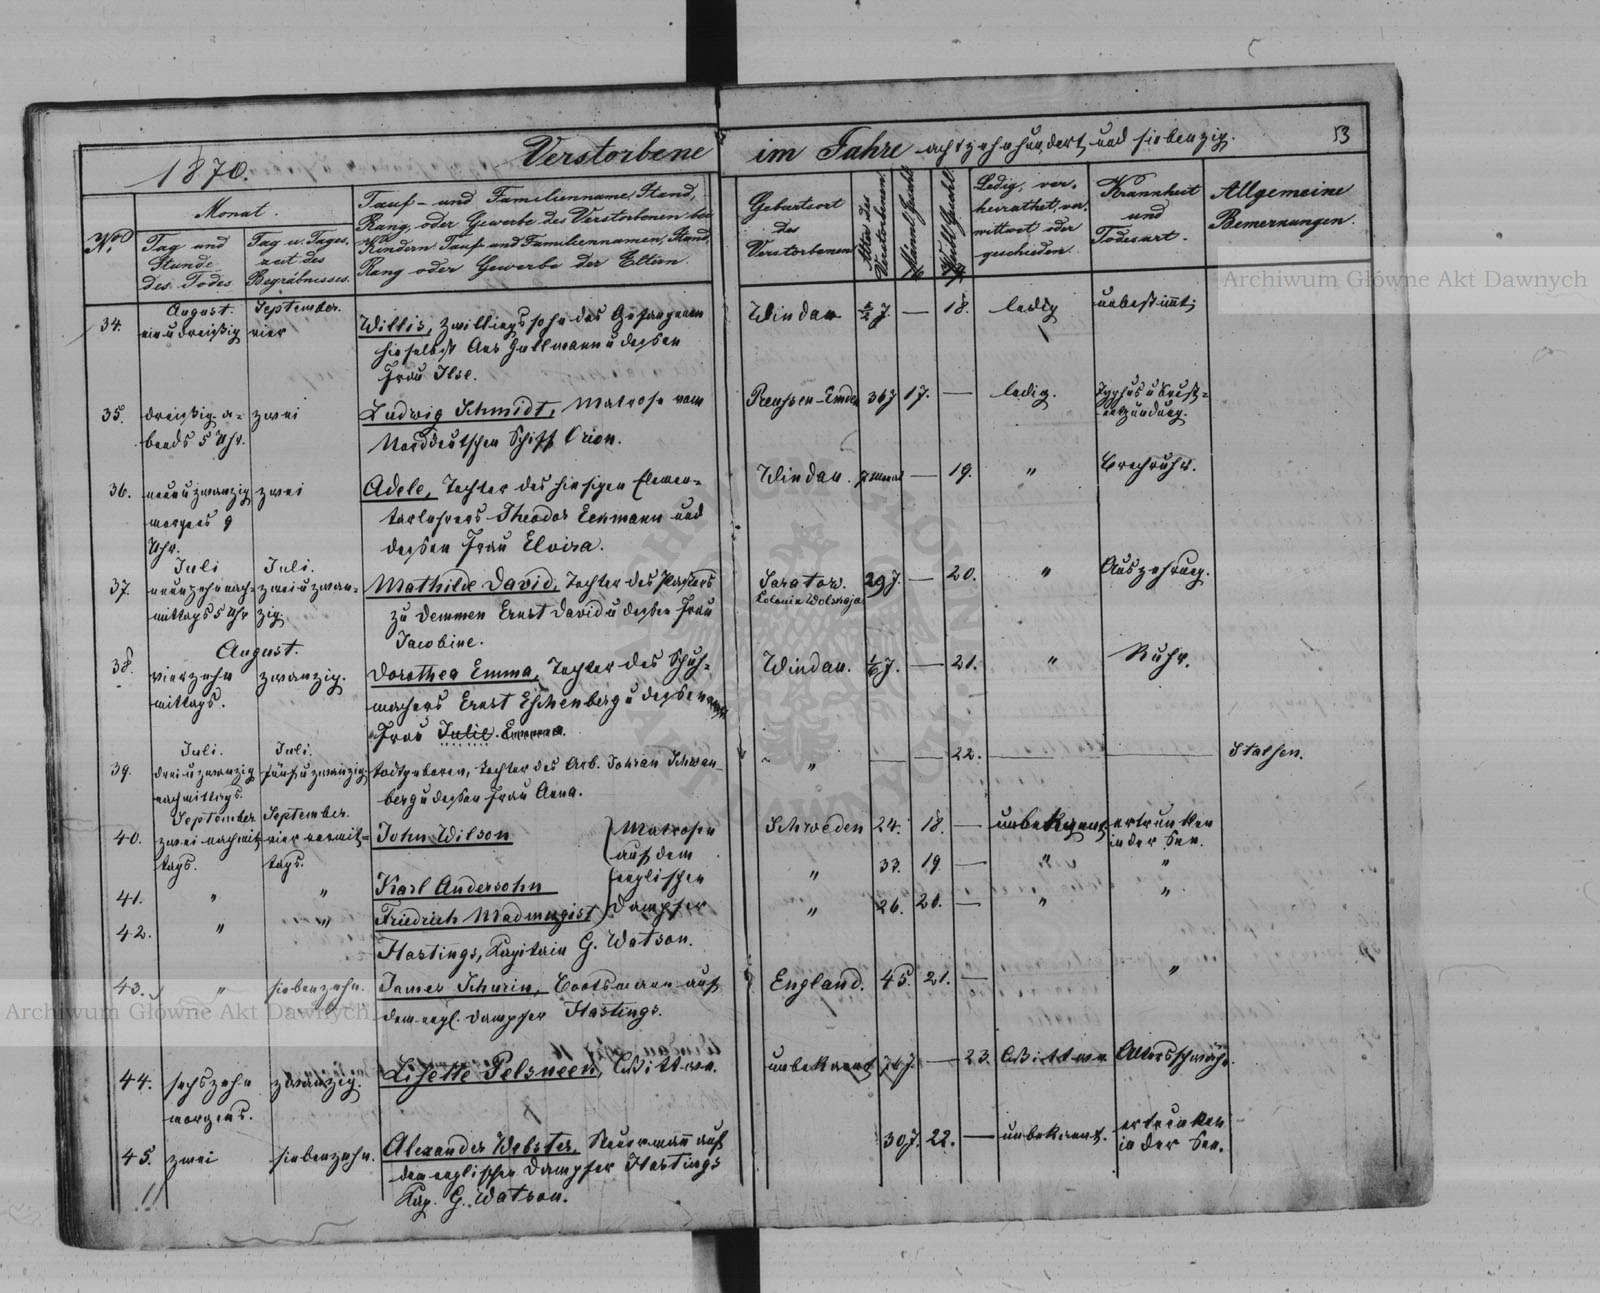 53
1870.
Verstorbene im Jahre achtzehnhundert und siebenzig.
No.
Monat.
Tag und
Stunde
des Todes
Tag u. Tages-
zeit des
Begräbnisses.
Tauf- und Familienname, Stand,
Rang, oder Gewerbe des Verstorbenen bei
Kindern Tauf und Familiennamen, Stand,
Rang oder Gewerbe der Eltern.
Geburtsort
des
Verstorbenen
Alter des
Verstorbenen
Männl. Geschl.
Weibl. Geschl.
Ledig, ver-
heirathet, ver-
wittwet oder
geschieden.
Krankheit
und
Todesart.
Allgemeine
Bemerkungen.
34.
August.
ein u dreißig
September.
vier
Willis, Zwillingssohn des Gefangenen
hieselbst Ans Gullmann u dessen
Frau Ilse.
Windau
J.
—
18.
ledig
unbestimmt
35.
dreißig a-
bends 5 Uhr.
zwei
Ludwig Schmidt, Matrose vom
Norddeutschen Schiff Orion.
Preussen-Emden
36 J
17.
—
ledig.
Typhus u Brust-
entzündung.
36.
neun u zwanzig
morgens 9
Uhr.
zwei
Adele, Tochter des hiesigen Elemen-
tarlehrers Theodor Eckmann und
dessen Frau Eloisa.
Windau.
7 Monat
—
19.
"
Brechruhr.
37.
Juli
neunzehn nach-
mittags 5 Uhr
Juli.
zwei u zwan-
zig.
Mathilde David, Tochter des Pastors
zu Demmen Ernst David u dessen Frau
Jacobine.
Saratow.
Kolonie Wolskaja
29 J.
—
20.
"
Auszehrung.
38.
August.
vierzehn
mittags.
zwanzig.
Dorothea Emma, Tochter des Schuh-
machers Ernst Eschenberg u dessen
Frau Julie Emma.
Windau.
J.
—
21.
"
Ruhr.
39.
Juli.
drei u zwanzig
nachmittags.
Juli.
fünf u zwanzig
todtgeboren, Tochter des Arb. Johann Schwan-
berg u dessen Frau Anna.
"
—
—
22.
—
—
Stassen.
40.
September
zwei nachmit-
tags.
September.
vier vormit-
tags.
John Wilson
Matrosen
auf dem
Schweden
24.
18.
—
unbekannt
ertrunken
in der See.
41.
"
"
Karl Andersohn
englischen
"
33.
19.
—
"
"
42.
"
"
Friedrich Madmugist
Dampfer
Hastings, Kapitain G. Watson.
"
26.
20.
—
"
"
43.
"
siebenzehn.
James Schurin, Bootsmann auf
dem engl. Dampfer Hastings.
England.
45.
21.
—
"
44.
sechszehn
morgens.
zwanzig.
Lisette Pelsneen, Wittwe.
unbekannt
J.
—
23.
Wittwe
Altersschwäche.
45.
zwei
siebenzehn.
Alexander Webster, Steuermann auf
dem englischen Dampfer Hastings
Kap. G. Watson.
30 J.
22.
—
unbekannt.
ertrunken
in der See.
Archiwum Główne Akt Dawnych
Archiwum Główne Akt Dawnych